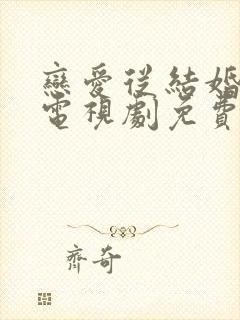 戀愛從結婚
電視劇免費
齊奇